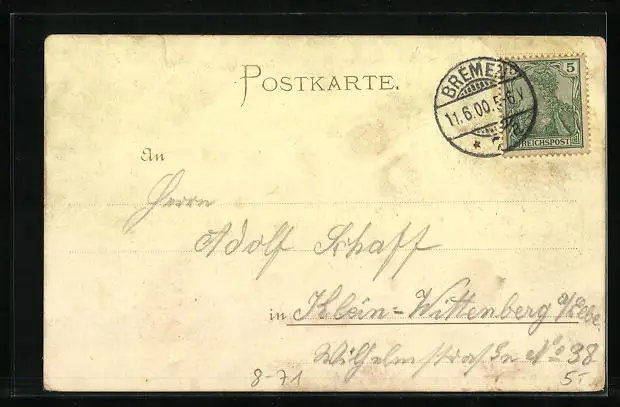 POSTKARTE.
BREMEN
11.6.00.5-6N
5
REICHSPOST
An
Herrn
Adolf Schaff
in Klein-Wittenberg a/Elbe
Wilhelmstraße No 38
8-71
5-